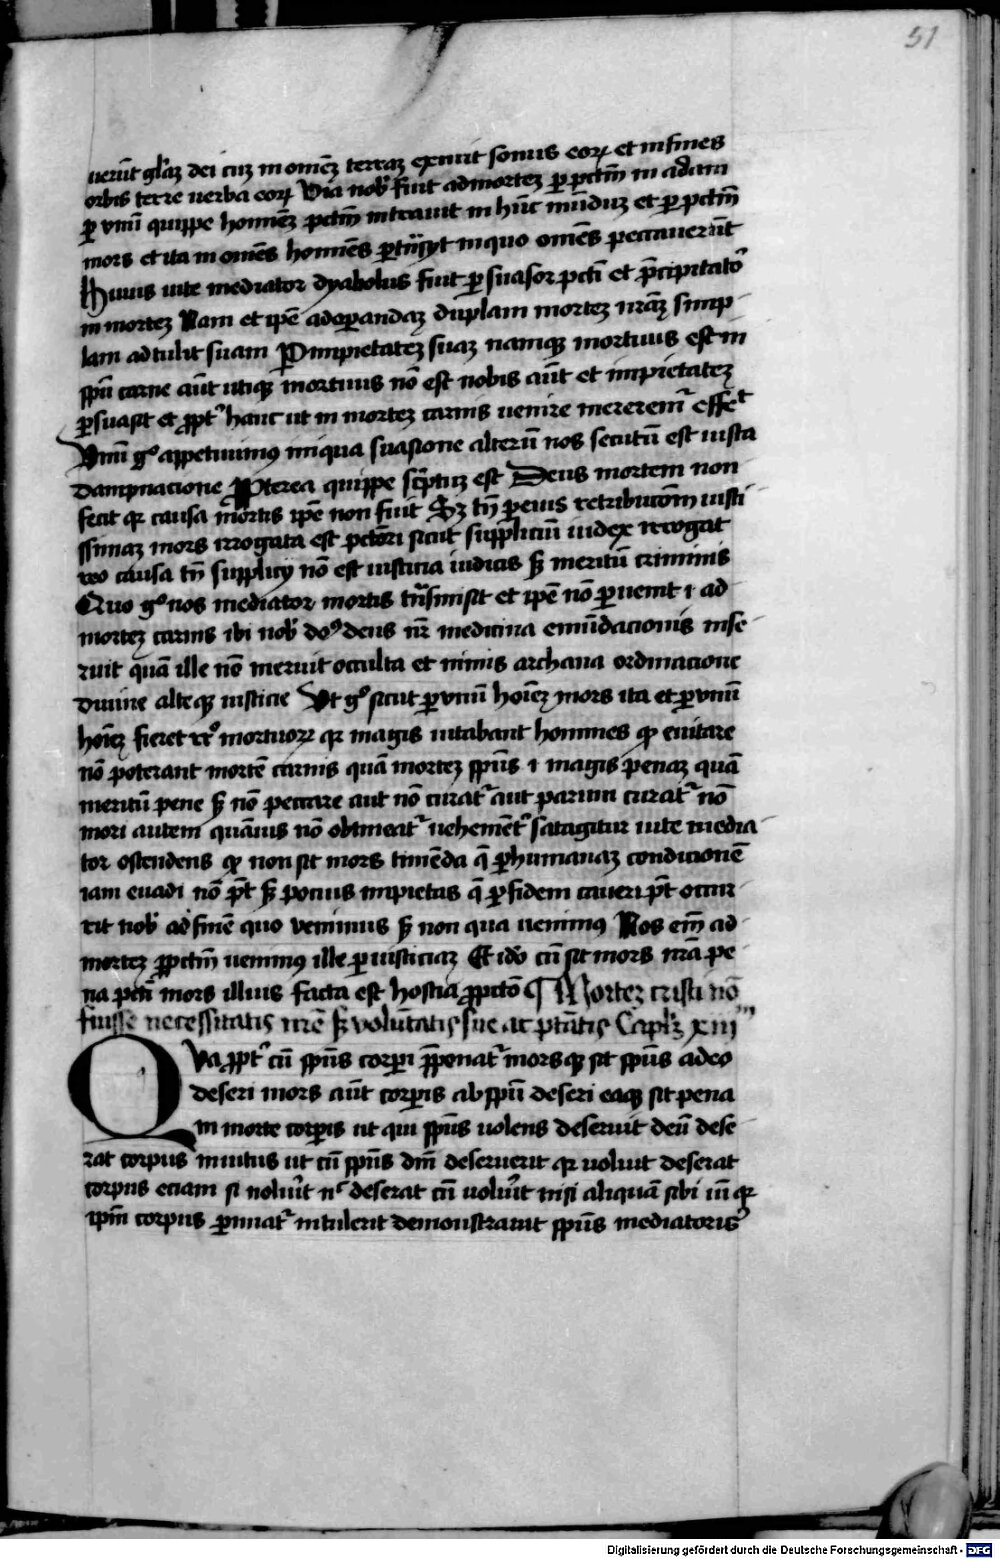 51
uerūt gl'aꝫ dei cuꝫ in omēꝫ terraꝫ exiuit sonus eoꝝ et in fines
orbis terre uerba eoꝝ Via nob̄ fuit ad morteꝫ ꝑ pctm̄ in adam
ꝑ vnū quippe hominēꝫ pctm̄ intrauit in hūc mūduꝫ et ꝑ pctm̄
mors et ita in omēs homīes ꝑtrāsyt in quo omēs peccauerūt
Huius uite mediator dyabolus fuit ꝑsuasor pcti et p̄cipitato
in morteꝫ Nam et ip̄e ad oꝑandaꝫ duplam morteꝫ nr̄aꝫ simp-
lam adtulit suam P impietateꝫ suaꝫ namqꝫ mortuus est in
spū carne aūt utiqꝫ mortuus nō est nobis aūt et impietateꝫ
ꝑsuasit et ꝓpt' hanc ut in morteꝫ carnis uenire mererem' effet
Vnū gͦ appetiuimꝰ iniqua suasione alterū nos secutū est iusta
dampnacione Propterea quippe scptuꝫ est Deus mortem non
fecit qꝛ causa mortis ip̄e non fuit Sꝫ tn̄ ꝑ eius retribucōm iusti-
ssimaꝫ mors irrogata est pctōri sicut suppliciū iudex irrogat
reo causa tn̄ supplicij nō est iusticia iudicis sꝫ meritū criminis
Quo gͦ nos mediator mortis trāsmisit et ip̄e nō ꝑuenit i ad
morteꝫ carnis ibi nob̄ doꝰ deus nr̄ medicina emūdacionis inse-
ruit quā ille nō meruit occulta et nimis archana ordinacione
diuine alteqꝫ iusticie Vt gͦ sicut ꝑ vnū hoīeꝫ mors ita et ꝑ vnū
hoīeꝫ fieret rꝰ mortuoꝝ qꝛ magis uitabant homines qͥ euitare
nō poterant mortē carnis quā morteꝫ spūs i magis penaꝫ quā
meritū pene sꝫ nō peccare aut nō curat' aut parum curat' nō
mori autem quāuis nō obtineat' uehemēt' satagitur uite media-
tor ostendens qͥ non sit mors timēda q̄ ꝑ humanaꝫ condicionē
iam euadi nō pt̄ sꝫ pocius impietas q̄ ꝑ fidem caueri pt̄ occur-
rit nob̄ ad finē quo venimus sꝫ non qua uenimꝰ Nos em̄ ad
morteꝫ ꝑ pctm̄ uenimꝰ ille ꝑ iusticiaꝫ Et ido cū sit mors nr̄a pe-
na pctī mors illius facta est hostia ꝓ pctō ¶ Morteꝫ cristi nō
fuisse necessitatis nr̄e sꝫ volūtatis sue ac ptātis Capl'ꝫ xiiiᵐ
Qva ꝓpt' cū spūs corpi p̄ponat' morsqꝫ sit spūs a deo
deseri mors aūt corꝑis ab spū deseri eaqꝫ sit pena
in morte corꝑis ut qui spūs uolens deseruit deū dese-
rat corpus inuitus ut cū spūs dm̄ deseruerit qꝛ uoluit deserat
corpus eciam si noluit nᶜ deserat cū uolūit nisi aliquā sibi uī qꝛ
ipm̄ corpus ꝑimat' intulerit demonstrauit spūs mediatoris
Digitalisierung gefördert durch die Deutsche Forschungsgemeinschaft - DFG